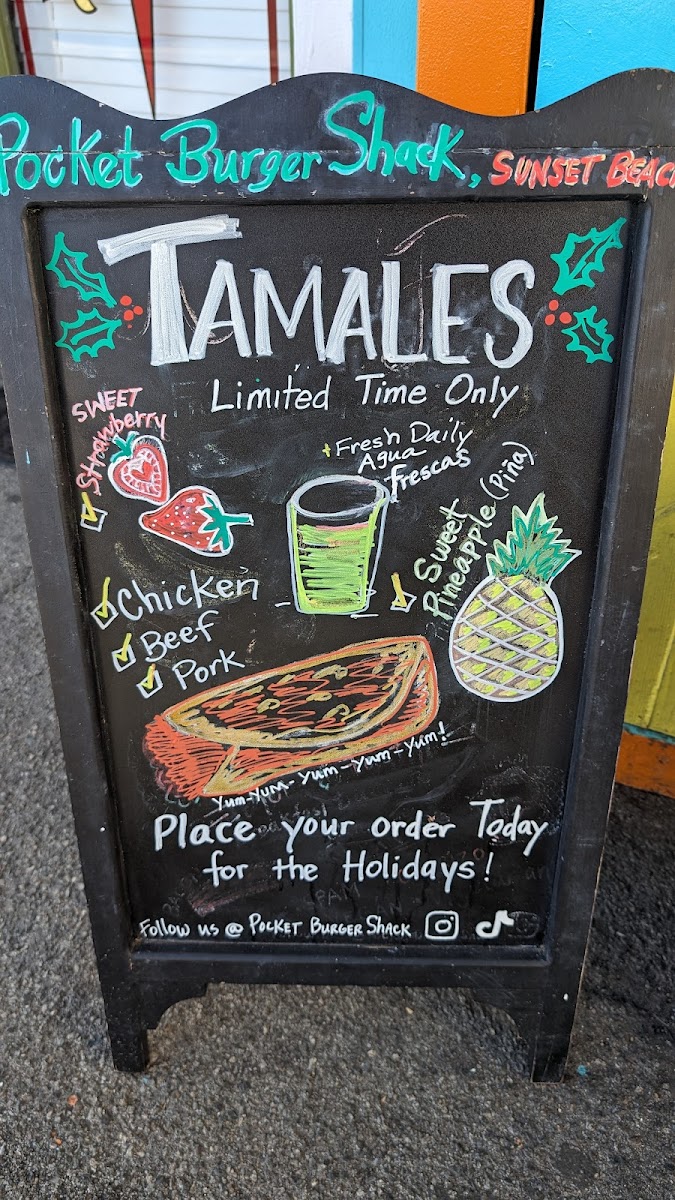 Pocket Burger Shack, SUNSET BEACH
TAMALES
Limited Time Only
SWEET
Strawberry
+Fresh Daily
Agua
frescas
Sweet
Pineapple (Piña)
Chicken
Beef
Pork
Yum-Yum-Yum-Yum-Yum!
Place your order Today
for the Holidays!
Follow us @ Pocket Burger Shack